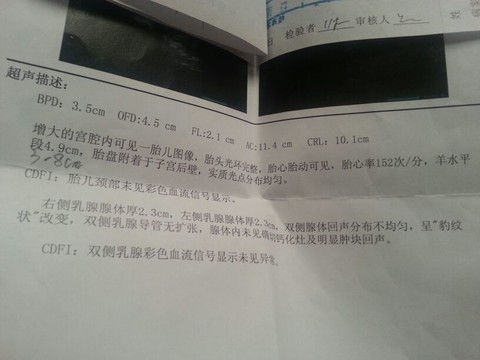 检验者 审核人
姓
超声描述：
BPD: 3.5cm OFD:4.5 cm FL:2.1 cm AC:11.4 cm CRL: 10.1cm
增大的宫腔内可见一胎儿图像，胎头光环完整，胎心胎动可见，胎心率152次/分，羊水平
段4.9cm，胎盘附着于子宫后壁，实质光点分布均匀。
CDFI：胎儿颈部未见彩色血流信号显示。
右侧乳腺腺体厚2.3cm，左侧乳腺腺体厚2.3cm，双侧腺体回声分布不均匀，呈"豹纹
状"改变，双侧乳腺导管无扩张，腺体内未见确切钙化灶及明显肿块回声。
CDFI：双侧乳腺彩色血流信号显示未见异常。